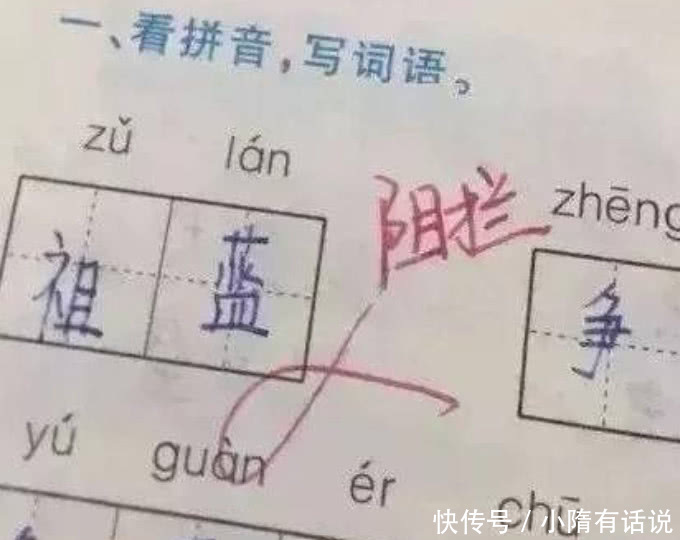 一、看拼音,写词语。
zǔ lán
祖蓝
阻拦
zhēng
争
yú guàn ér chū
快传号/小隋有话说